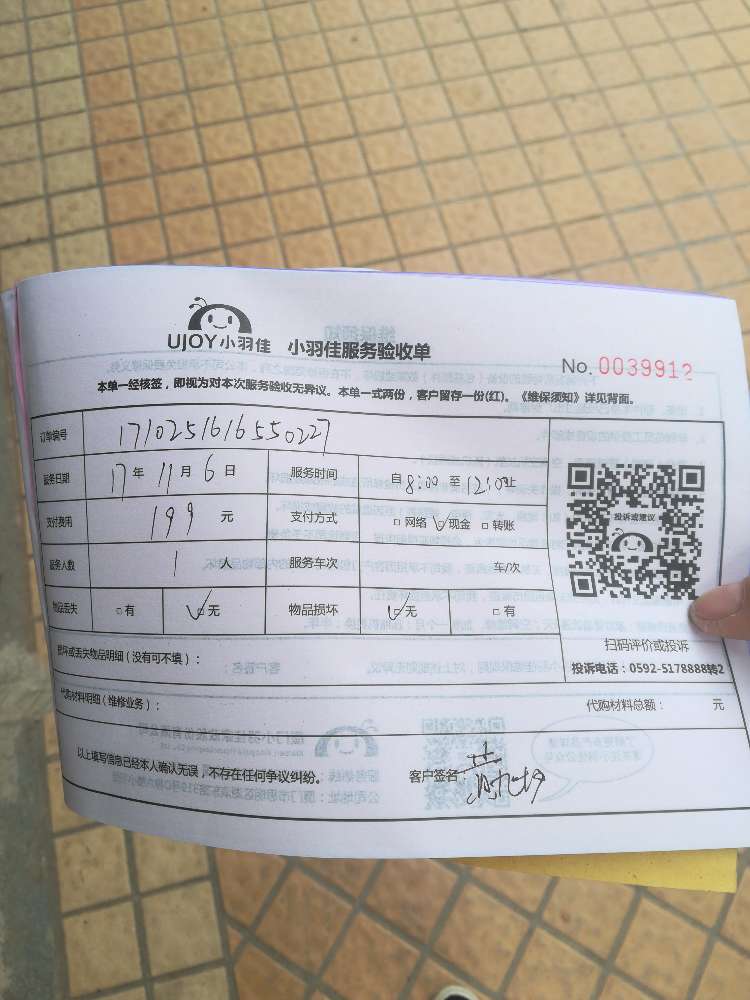 UJOY小羽佳 小羽佳服务验收单
No. 0039912
本单一经核签，即视为对本次服务验收无异议。本单一式两份，客户留存一份(红)。《维保须知》详见背面。
订单编号 1710251616550227
服务日期 17年 11月 6日 服务时间 自8:00至12:00止
支付费用 199 元 支付方式 □网络 ☑现金 □转账
服务人数 1 人 服务车次 车/次
物品丢失 □有 ☑无 物品损坏 ☑无 □有
投诉或建议
扫码评价或投诉
投诉电话：0592-5178888转2
损坏或丢失物品明细（没有可不填）：
代购材料明细（维修业务）： 代购材料总额： 元
以上填写信息已经本人确认无误，不存在任何争议纠纷。 客户签名：